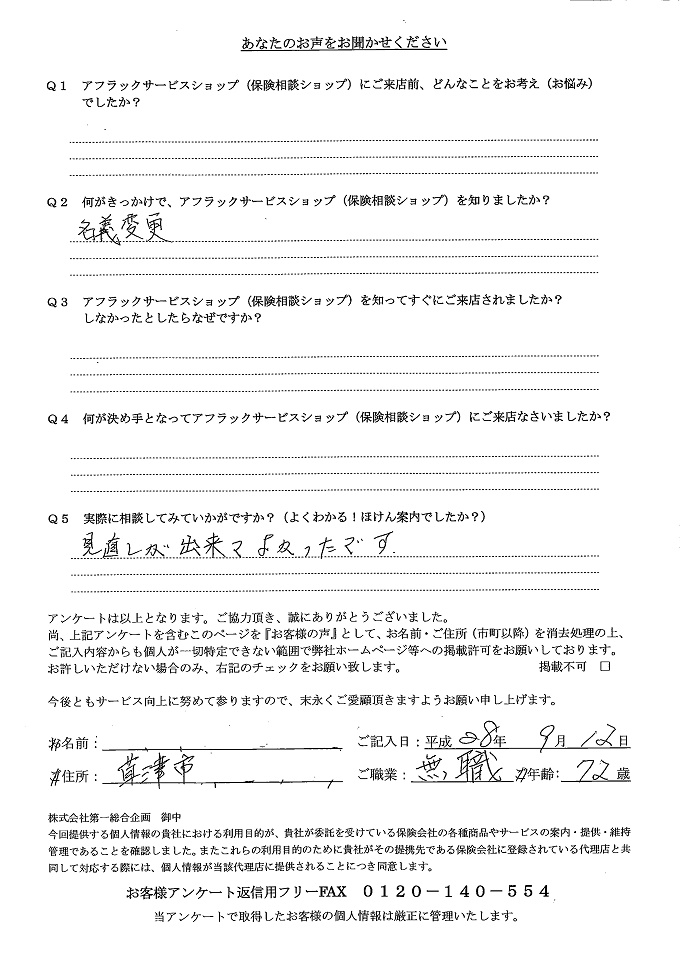 あなたのお声をお聞かせください
Q1 アフラックサービスショップ（保険相談ショップ）にご来店前、どんなことをお考え（お悩み）
でしたか？
Q2 何がきっかけで、アフラックサービスショップ（保険相談ショップ）を知りましたか？
名義変更
Q3 アフラックサービスショップ（保険相談ショップ）を知ってすぐにご来店されましたか？
しなかったとしたらなぜですか？
Q4 何が決め手となってアフラックサービスショップ（保険相談ショップ）にご来店なさいましたか？
Q5 実際に相談してみていかがですか？（よくわかる！ほけん案内でしたか？）
見直しが出来てよかったです.
アンケートは以上となります。ご協力頂き、誠にありがとうございました。
尚、上記アンケートを含むこのページを『お客様の声』として、お名前・ご住所（市町以降）を消去処理の上、
ご記入内容からも個人が一切特定できない範囲で弊社ホームページ等への掲載許可をお願いしております。
お許しいただけない場合のみ、右記のチェックをお願い致します。 掲載不可 □
今後ともサービス向上に努めて参りますので、末永くご愛顧頂きますようお願い申し上げます。
お名前： ご記入日：平成 28年 9月 12日
ご住所： 草津市 ご職業： 無職 ご年齢： 72歳
株式会社第一総合企画 御中
今回提供する個人情報の貴社における利用目的が、貴社が委託を受けている保険会社の各種商品やサービスの案内・提供・維持
管理であることを確認しました。またこれらの利用目的のために貴社がその提携先である保険会社に登録されている代理店と共
同して対応する際には、個人情報が当該代理店に提供されることにつき同意します。
お客様アンケート返信用フリーFAX 0120－140－554
当アンケートで取得したお客様の個人情報は厳正に管理いたします。